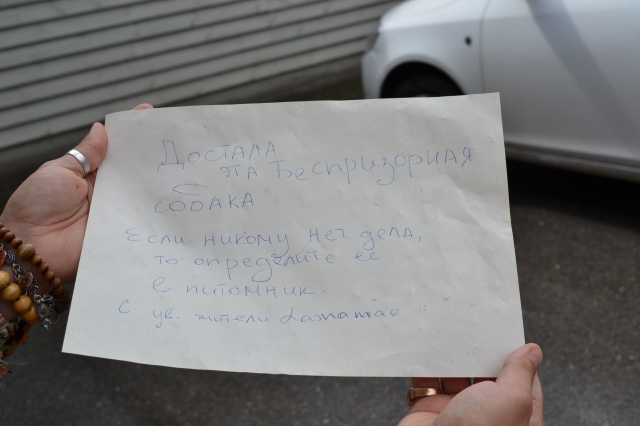 Достала
эта Беспризорная
собака
Если никому нет дела,
то определите её
в питомник.
С ув. жители Lasnamäe